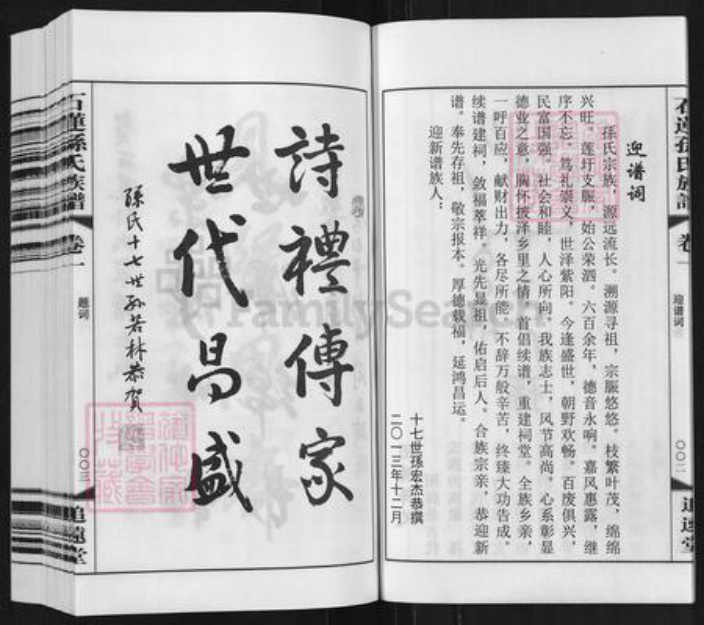 迎谱词
孙氏宗族，源远流长。溯源寻祖，宗脤悠悠。枝繁叶茂，绵绵
兴旺。莲圩支脤，始公荣泗。六百余年，德音永响。嘉风惠露，继
序不忘。笃礼崇义，世泽紫阳。今逢盛世，朝野欢畅。百废俱兴，
民富国强。社会和睦，人心所向。我族志士，风节高尚。心系彰显
德业之意，胸怀披泽乡里之情。首倡续谱，重建祠堂。全族乡亲，
一呼百应，献财出力，各尽所能。不辞万般辛苦，终臻大功告成。
续谱建祠，敛福萃祥。光先显祖，佑启后人。合族宗亲，恭迎新
谱。奉先存祖，敬宗报本。厚德载福，延鸿昌运。
迎新谱族人：
十七世孫宏杰恭撰
二〇一三年十二月
石莲孫氏族譜
卷一
迎谱词
〇〇二
追遠堂
詩禮傳家
世代昌盛
孫氏十七世孙若林恭贺
石蓮孫氏族譜
卷一
题词
〇〇三
追遠堂
FamilySearch